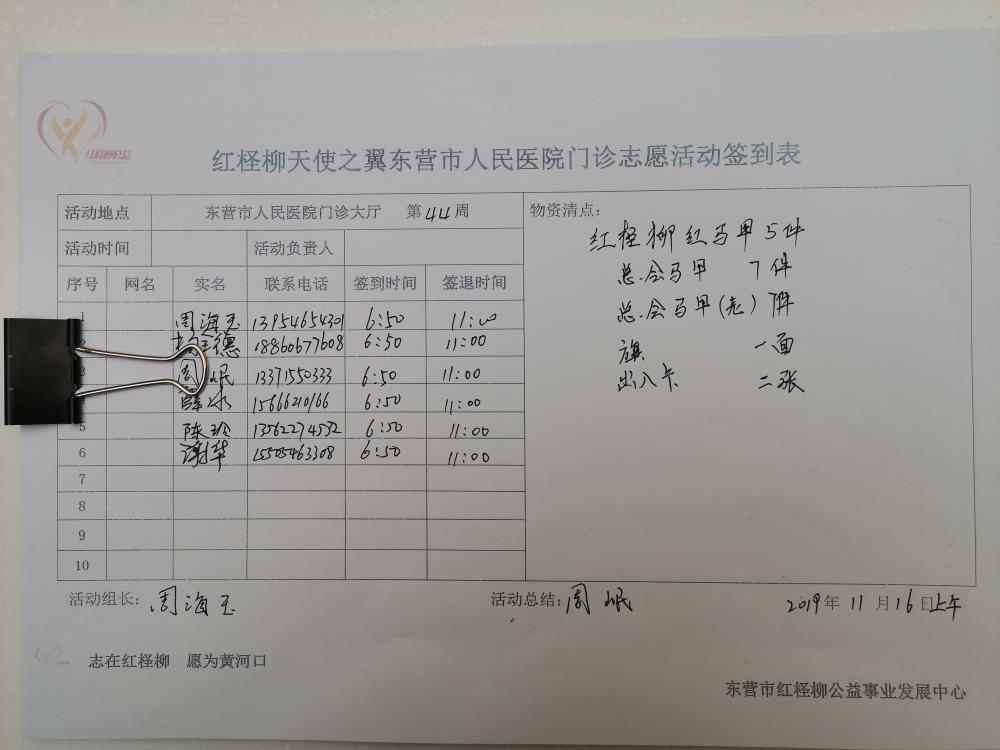 红柽柳公益
红柽柳天使之翼东营市人民医院门诊志愿活动签到表
活动地点 东营市人民医院门诊大厅 第44周
活动时间 活动负责人
序号 网名 实名 联系电话 签到时间 签退时间
1 周海玉 13954654301 6:50 11:00
德 18860677608 6:50 11:00
3 周岷 1371550333 6:50 11:00
薛冰 15666210166 6:50 11:00
5 陈玲 13562274532 6:50 11:00
6 谢华 15505463308 6:50 11:00
7
8
9
10
物资清点:
红柽柳红马甲5件
总会马甲 7件
总会马甲(老) 1件
旗 一面
出入卡 二张
活动组长: 周海玉
活动总结: 周岷
2019年11月16日上午
志在红柽柳 愿为黄河口
东营市红柽柳公益事业发展中心